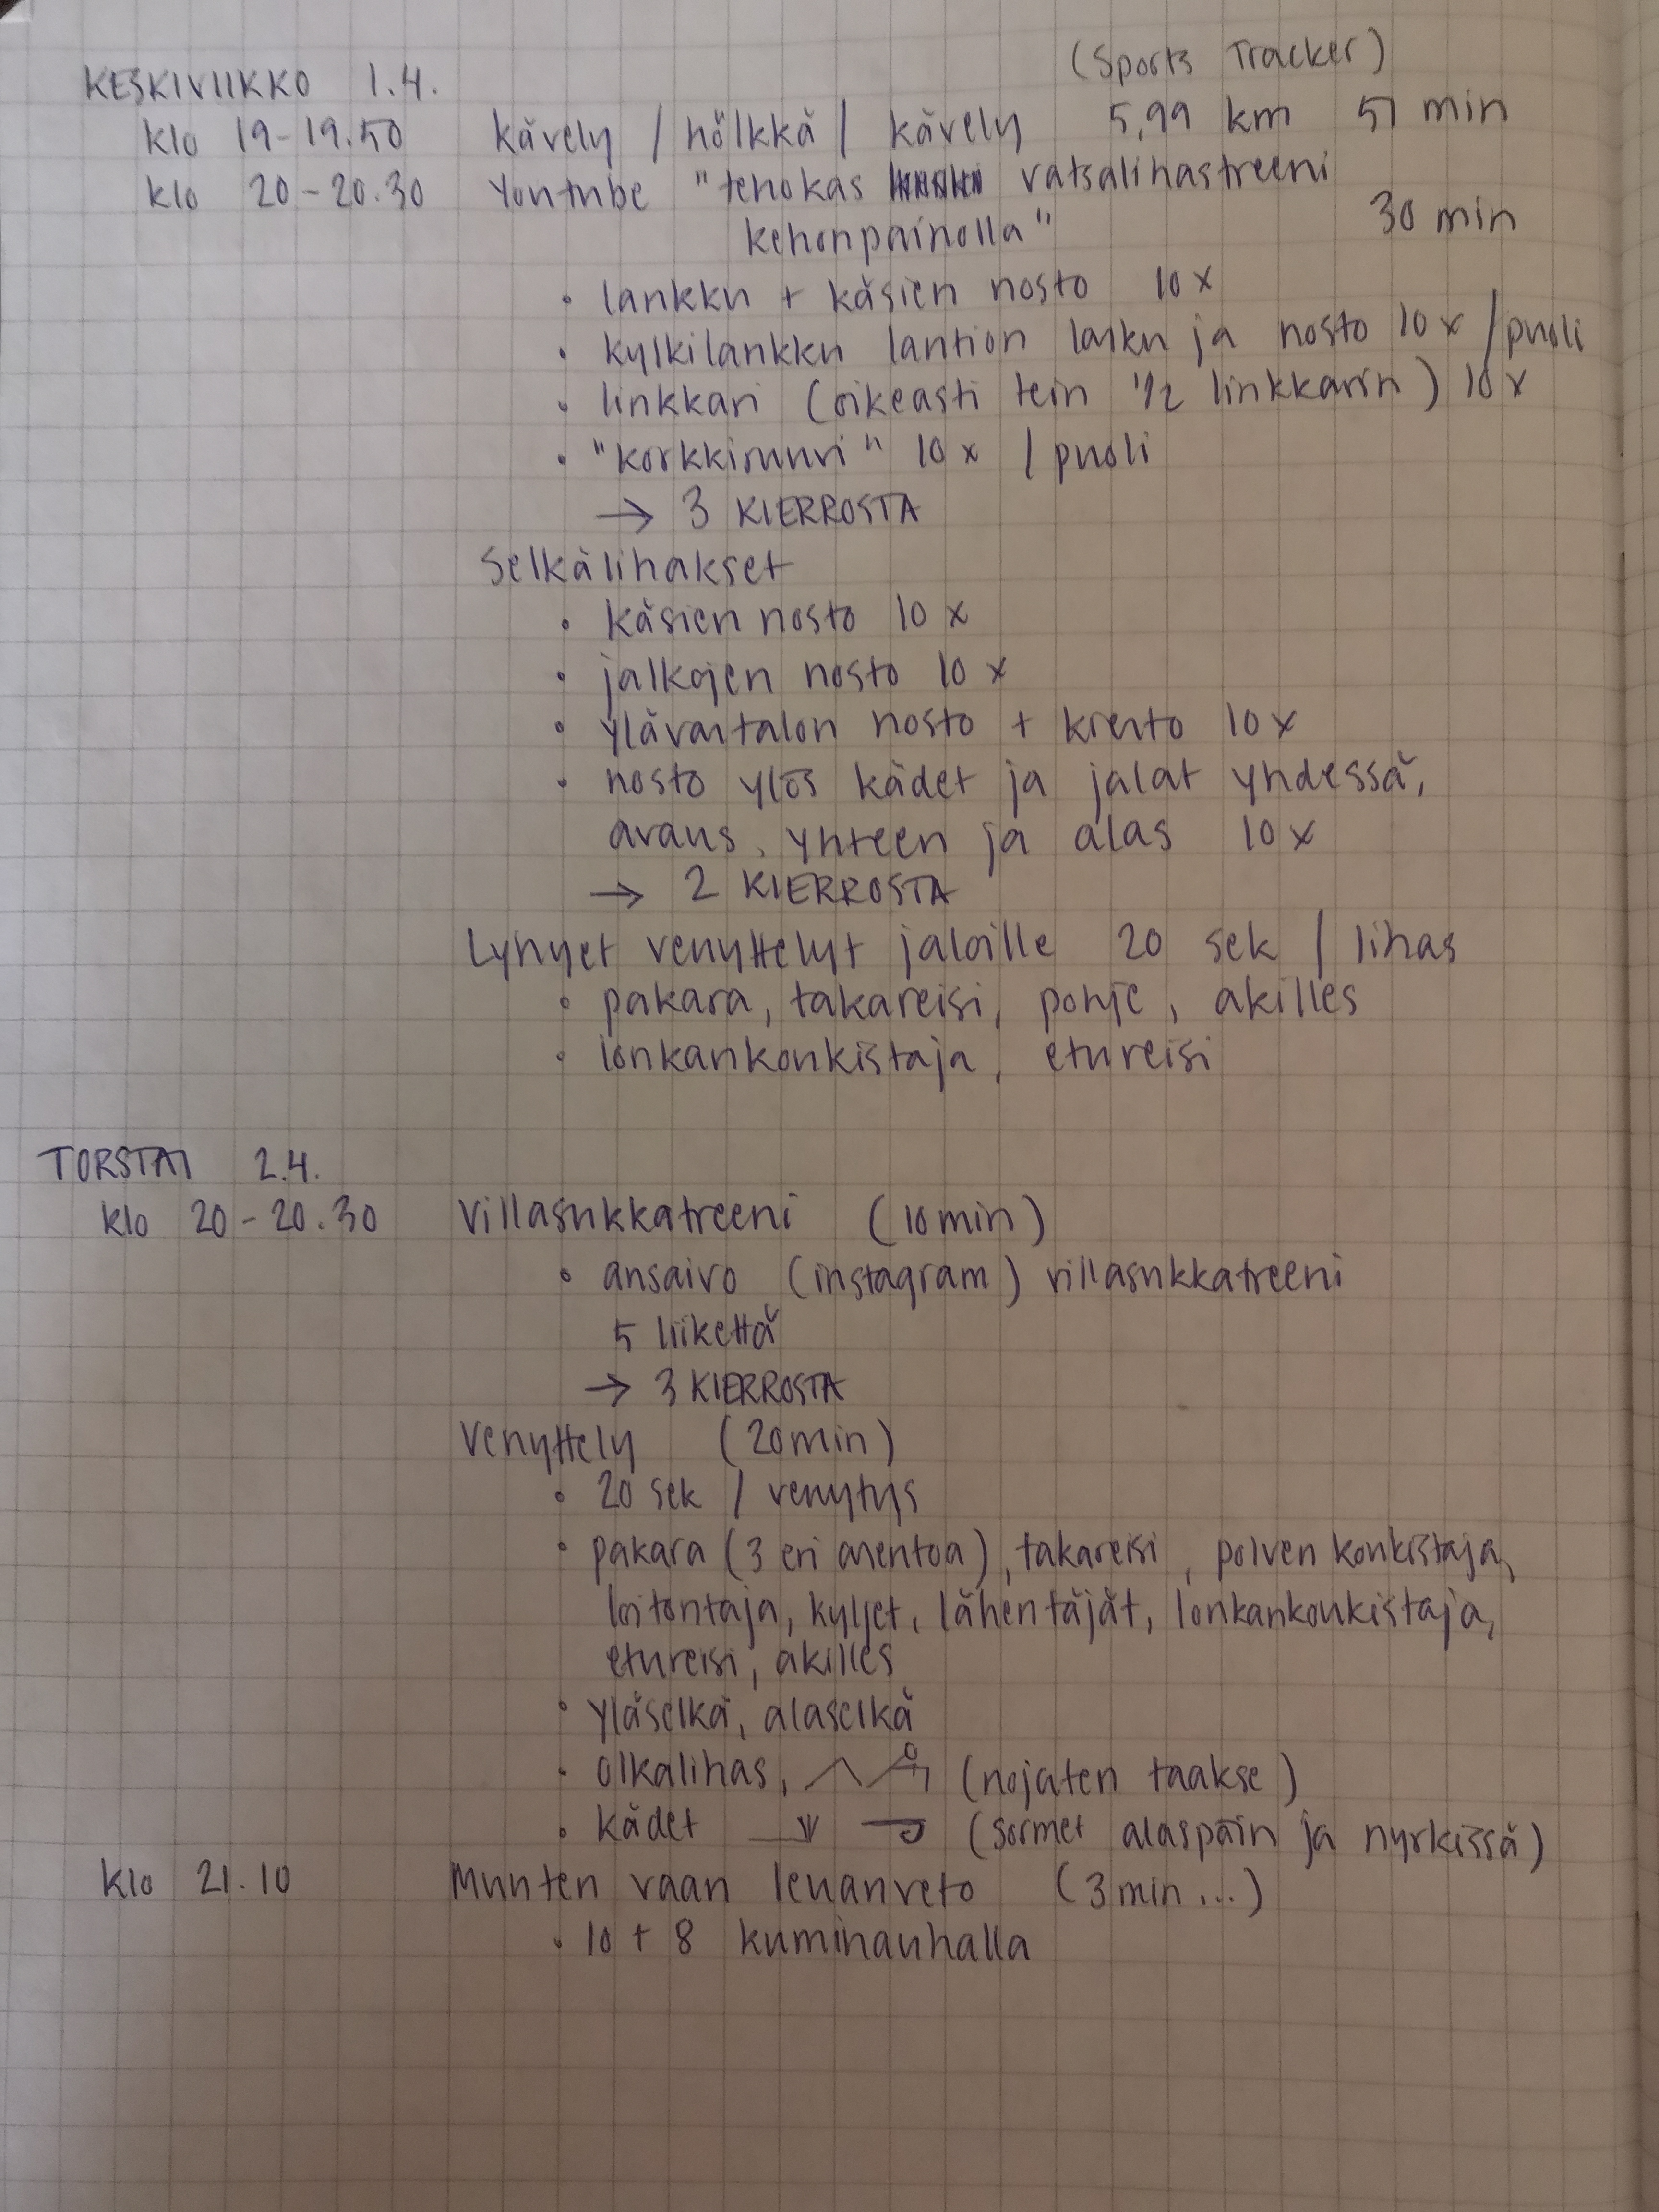 (Sports Tracker)
KESKIVIIKKO 1.4.
klo 19-19.50 kävely / hölkkä / kävely 5,99 km 51 min
klo 20-20.30 Youtube "tehokas vatsalihastreeni
kehonpainolla" 30 min
• lankku + käsien nosto 10 x
• kylkilankku lantion lasku ja nosto 10 x / puoli
• linkkari (oikeasti tein 1/2 linkkarin) 10 x
• "korkkiruuvi" 10 x / puoli
→ 3 KIERROSTA
Selkälihakset
• käsien nosto 10 x
• jalkojen nosto 10 x
• ylävartalon nosto + kierto 10 x
• nosto ylös kädet ja jalat yhdessä,
avaus, yhteen ja alas 10 x
→ 2 KIERROSTA
Lyhyet venyttelyt jaloille 20 sek / lihas
• pakara, takareisi, pohje, akilles
• lonkankoukistaja, etureisi
TORSTAI 2.4.
klo 20-20.30 Villasukkatreeni (10 min)
• ansaivo (instagram) villasukkatreeni
5 liikettä
→ 3 KIERROSTA
Venyttely (20 min)
• 20 sek / venytys
• pakara (3 eri asentoa), takareisi, polven koukistaja,
loitontaja, kyljet, lähentäjät, lonkankoukistaja,
etureisi, akilles
• yläselkä, alaselkä
• olkalihas, (nojaten taakse)
• kädet (sormet alaspäin ja nyrkissä)
klo 21.10 Muuten vaan leuanveto (3 min...)
• 10 + 8 kuminauhalla